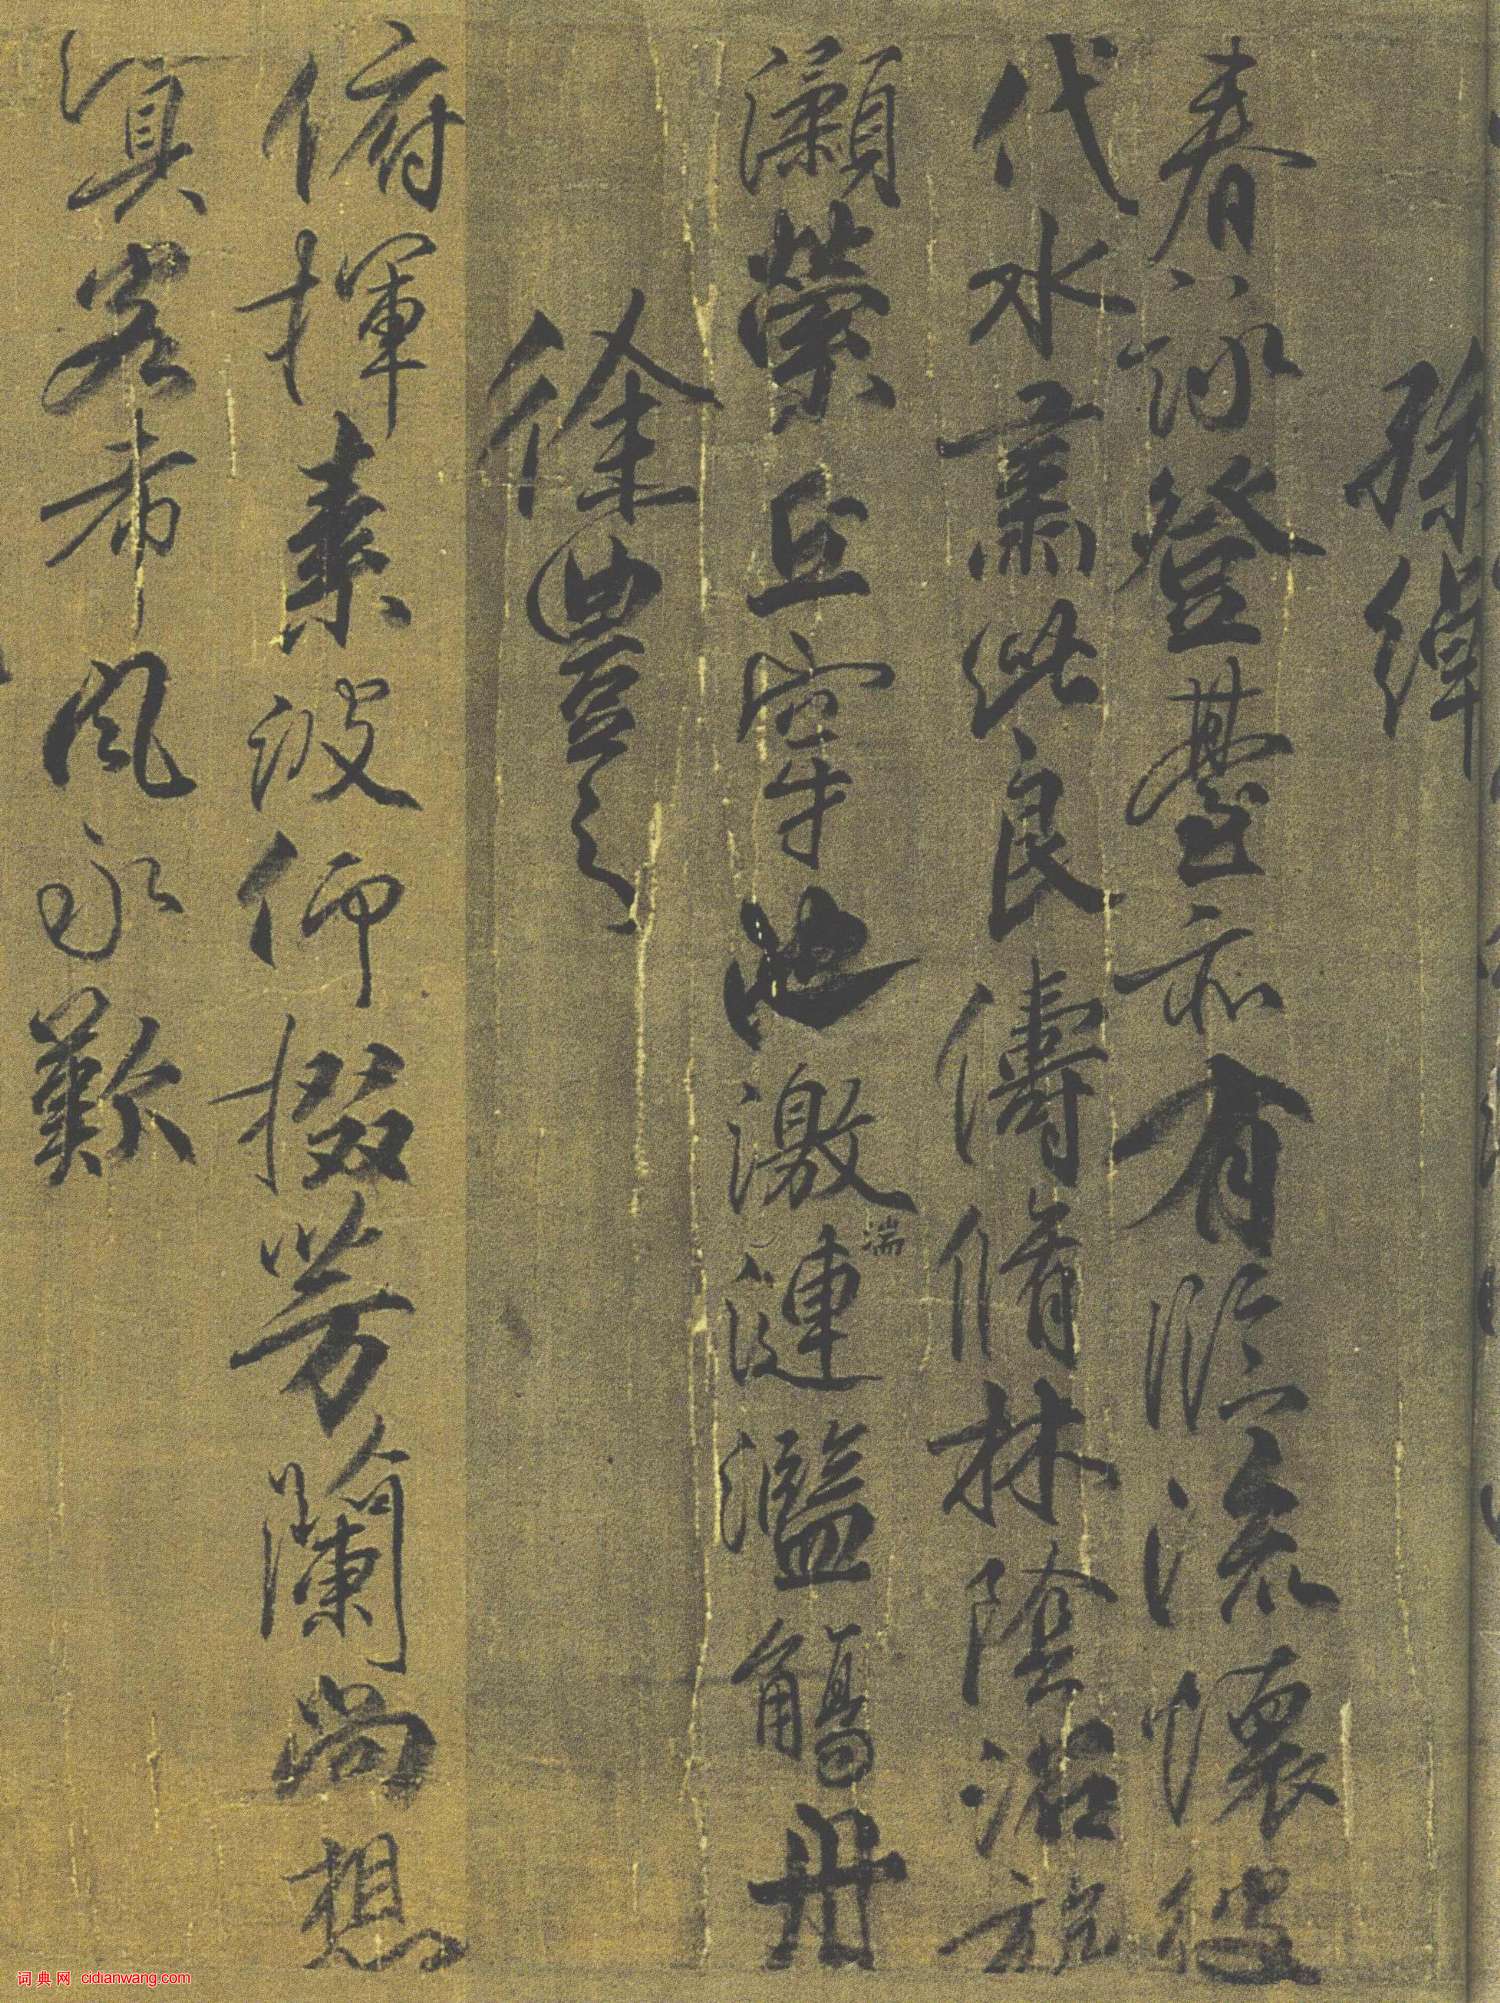 孫綽
春詠登臺亦有臨流懷彼
代水肅此良儔脩林陰沼旋
瀨縈丘穿池激湍漣濫觴舟
徐豐之
俯揮素波仰掇芳蘭尚想
冥客希風永歎
词典网 cidianwang.com